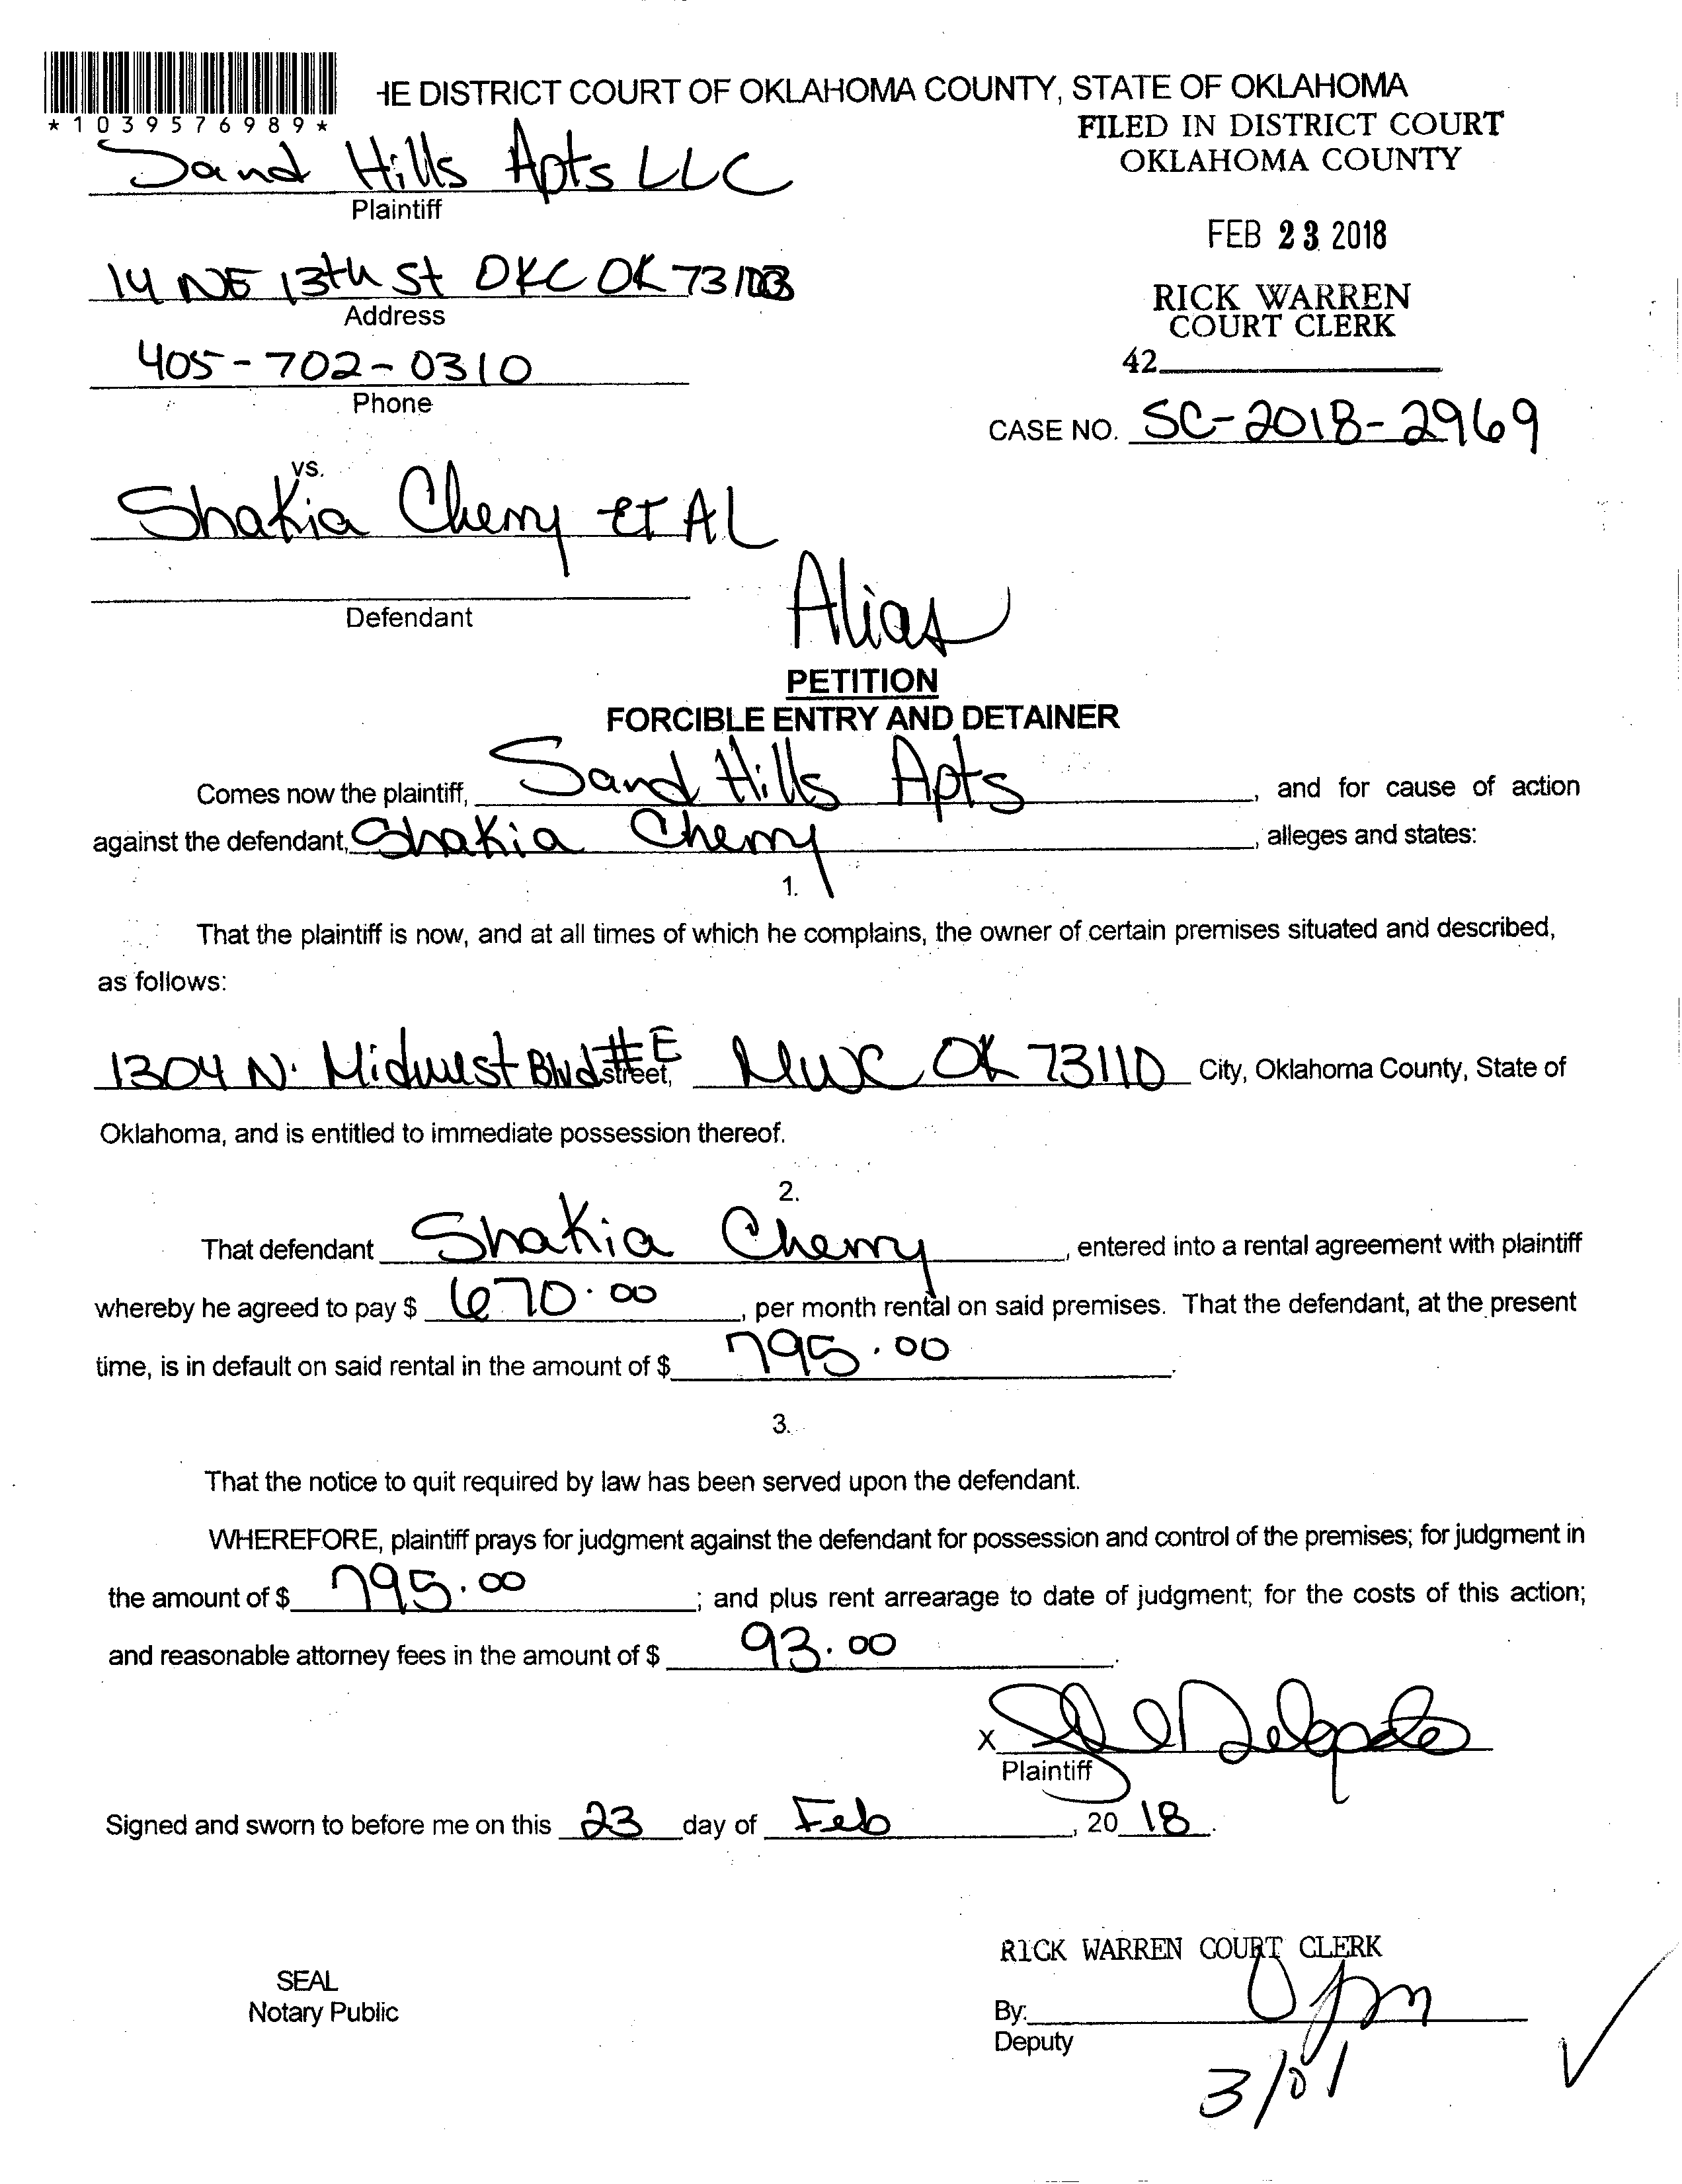 HE DISTRICT COURT OF OKLAHOMA COUNTY, STATE OF OKLAHOMA
*1039576989*
FILED IN DISTRICT COURT
OKLAHOMA COUNTY
Sand Hills Apts LLC
Plaintiff
FEB 23 2018
14 NE 13th St OKC OK 73103
Address
RICK WARREN
COURT CLERK
405-702-0310
Phone
42
CASE NO. SC-2018-2969
vs.
Shakia Cherry et AL
Defendant
Alias
PETITION
FORCIBLE ENTRY AND DETAINER
Comes now the plaintiff, Sand Hills Apts, and for cause of action
against the defendant, Shakia Cherry, alleges and states:
1.
That the plaintiff is now, and at all times of which he complains, the owner of certain premises situated and described,
as follows:
1304 N. Midwest Blvd #E street, MWC OK 73110 City, Oklahoma County, State of
Oklahoma, and is entitled to immediate possession thereof.
2.
That defendant Shakia Cherry, entered into a rental agreement with plaintiff
whereby he agreed to pay $ 670.00, per month rental on said premises. That the defendant, at the present
time, is in default on said rental in the amount of $ 795.00.
3.
That the notice to quit required by law has been served upon the defendant.
WHEREFORE, plaintiff prays for judgment against the defendant for possession and control of the premises; for judgment in
the amount of $ 795.00; and plus rent arrearage to date of judgment; for the costs of this action;
and reasonable attorney fees in the amount of $ 93.00.
X Delgado
Plaintiff
Signed and sworn to before me on this 23 day of Feb, 20 18.
RICK WARREN COURT CLERK
SEAL
Notary Public
By:
Deputy
3/01